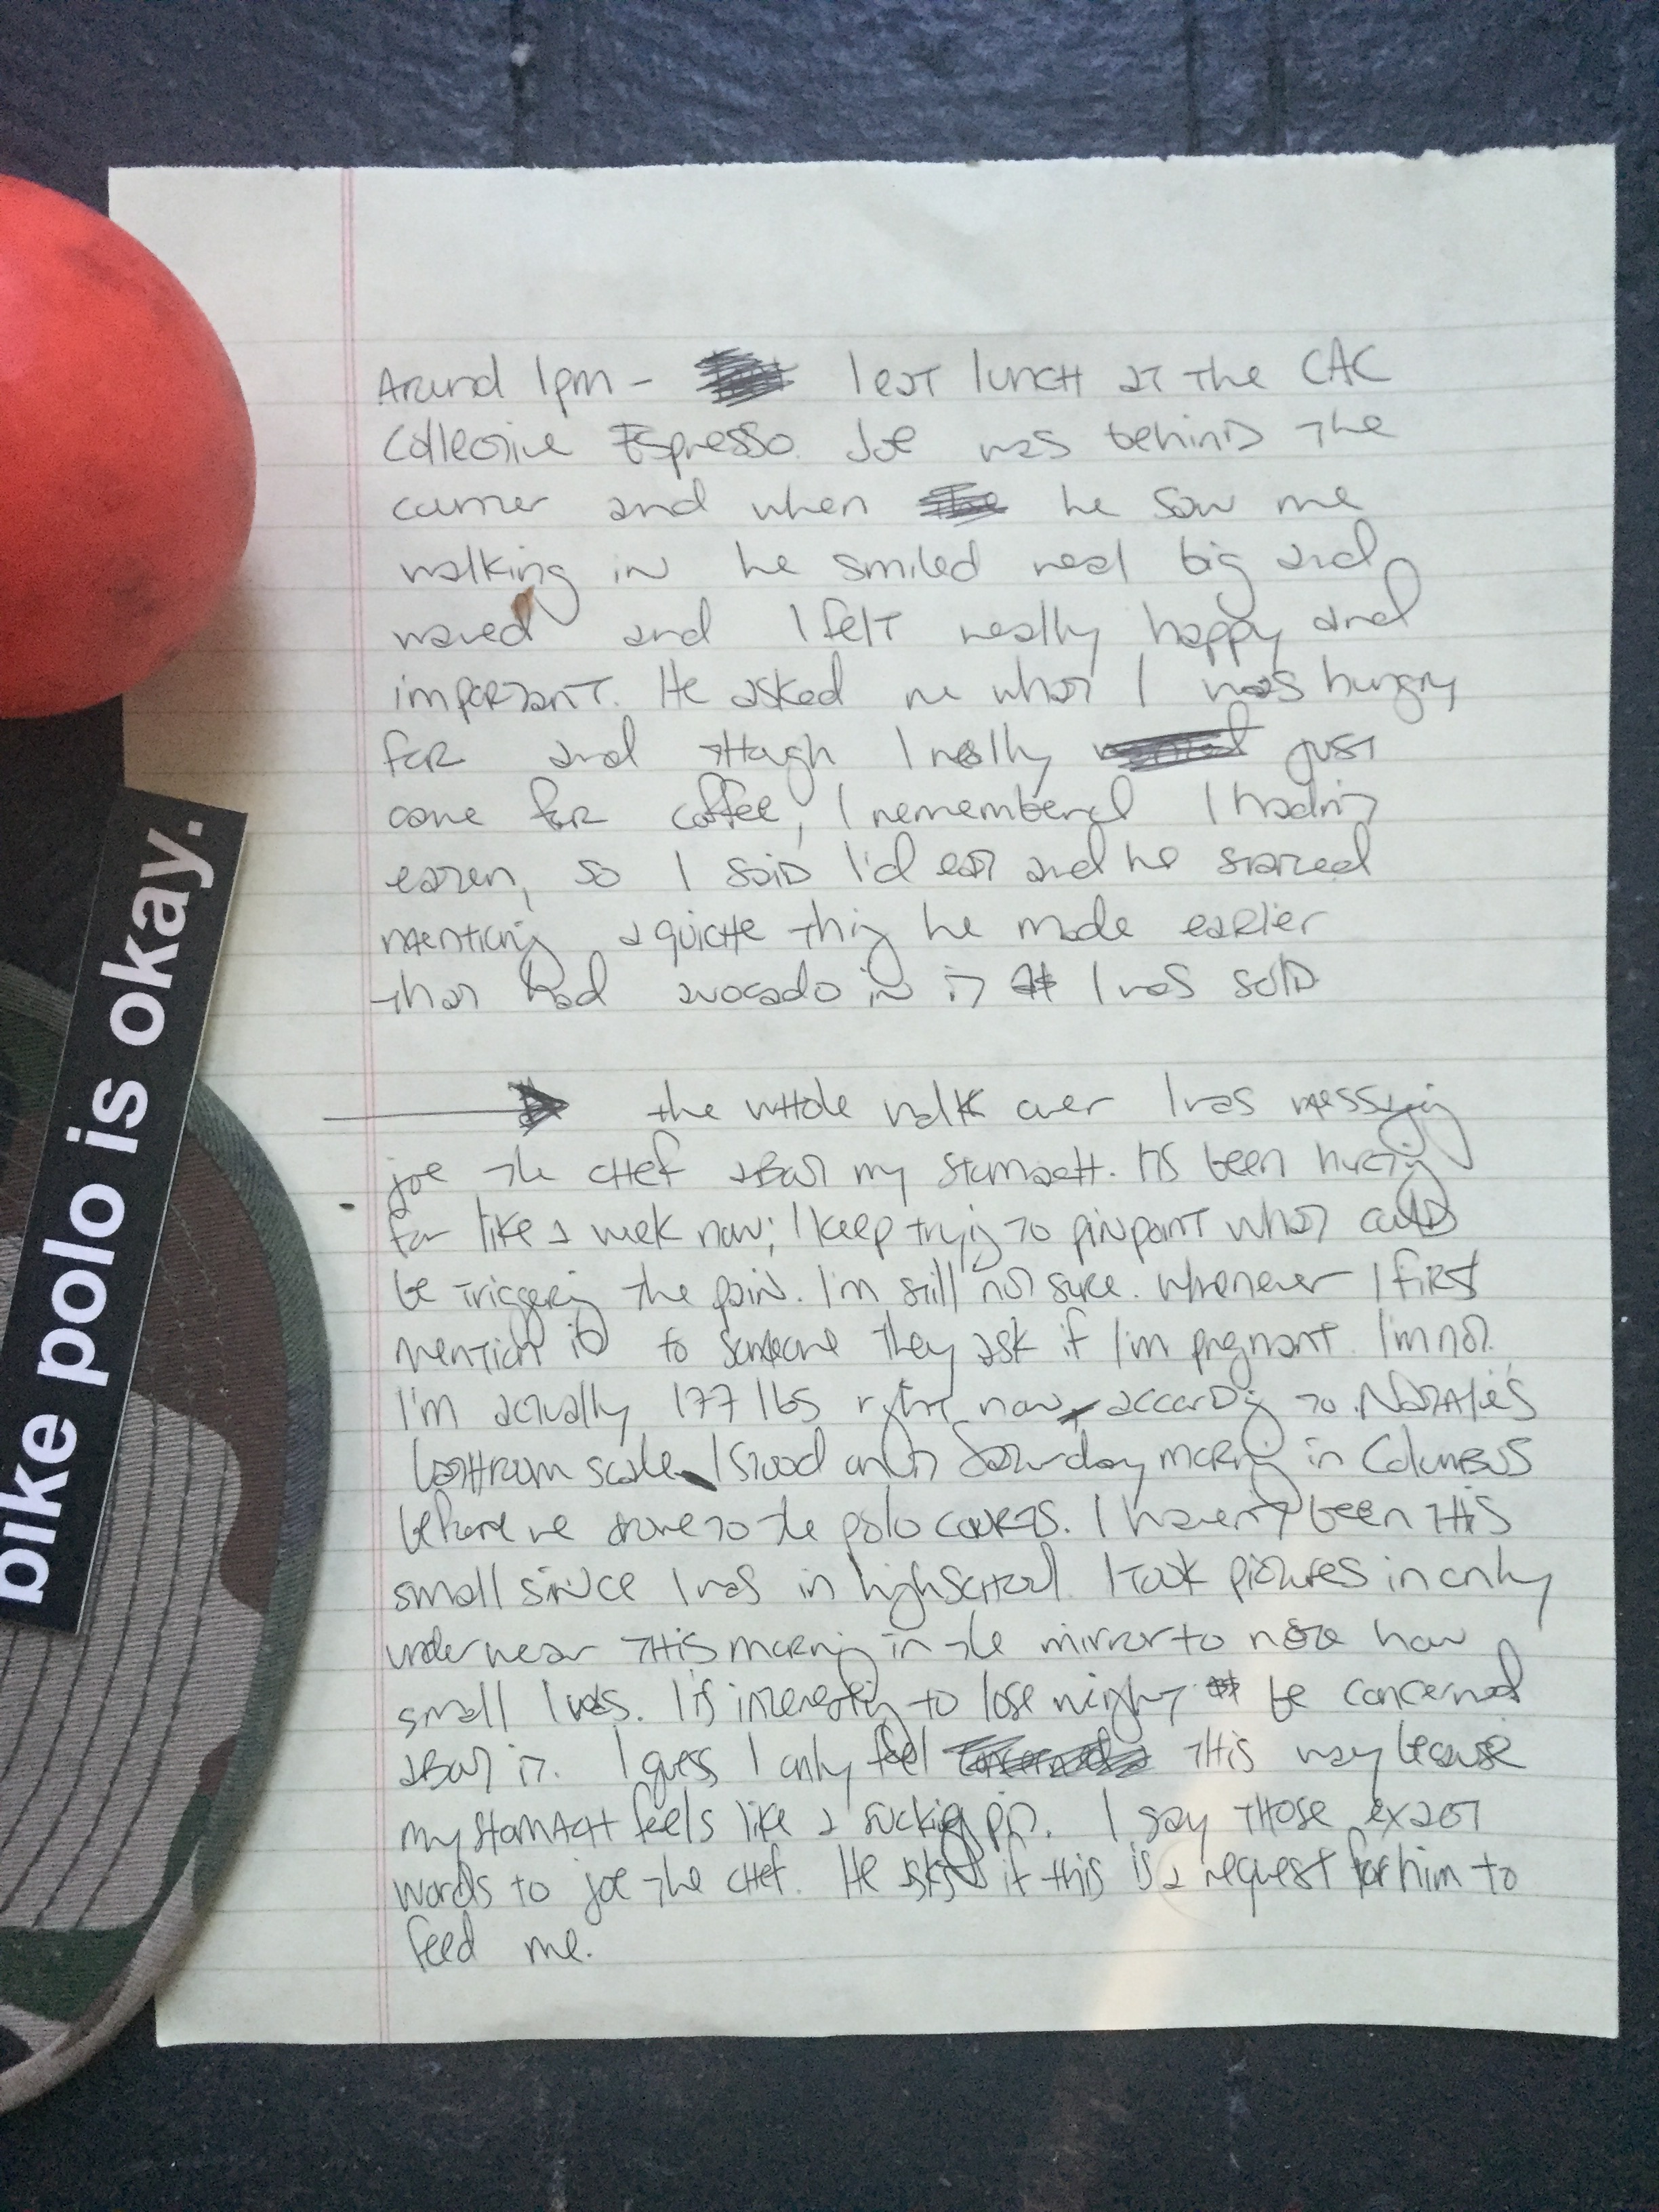 Around 1pm - I eat lunch at the CAC
Collective Espresso. Joe was behind the
counter and when he saw me
walking in he smiled real big and
waved and I felt really happy and
important. He asked me what I was hungry
for and though I really just
came for coffee, I remembered I hadn't
eaten, so I said I'd eat and he started
mentioning a quiche thing he made earlier
that had avocado in it I was sold
the whole walk over I was messaging
joe the chef about my stomach. Its been hurting
for like a week now; I keep trying to pinpoint what could
be triggering the pain. I'm still not sure. Whenever I first
mention it to someone they ask if I'm pregnant. I'm not.
I'm actually 177 lbs right now, according to Natalie's
bathroom scale I stood on it Saturday morning in Columbus
before we drove to the polo courts. I haven't been this
small since I was in highschool. I took pictures in only
underwear this morning in the mirror to note how
small I was. It is interesting to lose weight be concerned
about it. I guess I only feel this way because
my stomach feels like a sucking pit. I say those exact
words to joe the chef. He asks if this is a request for him to
feed me.
bike polo is okay.